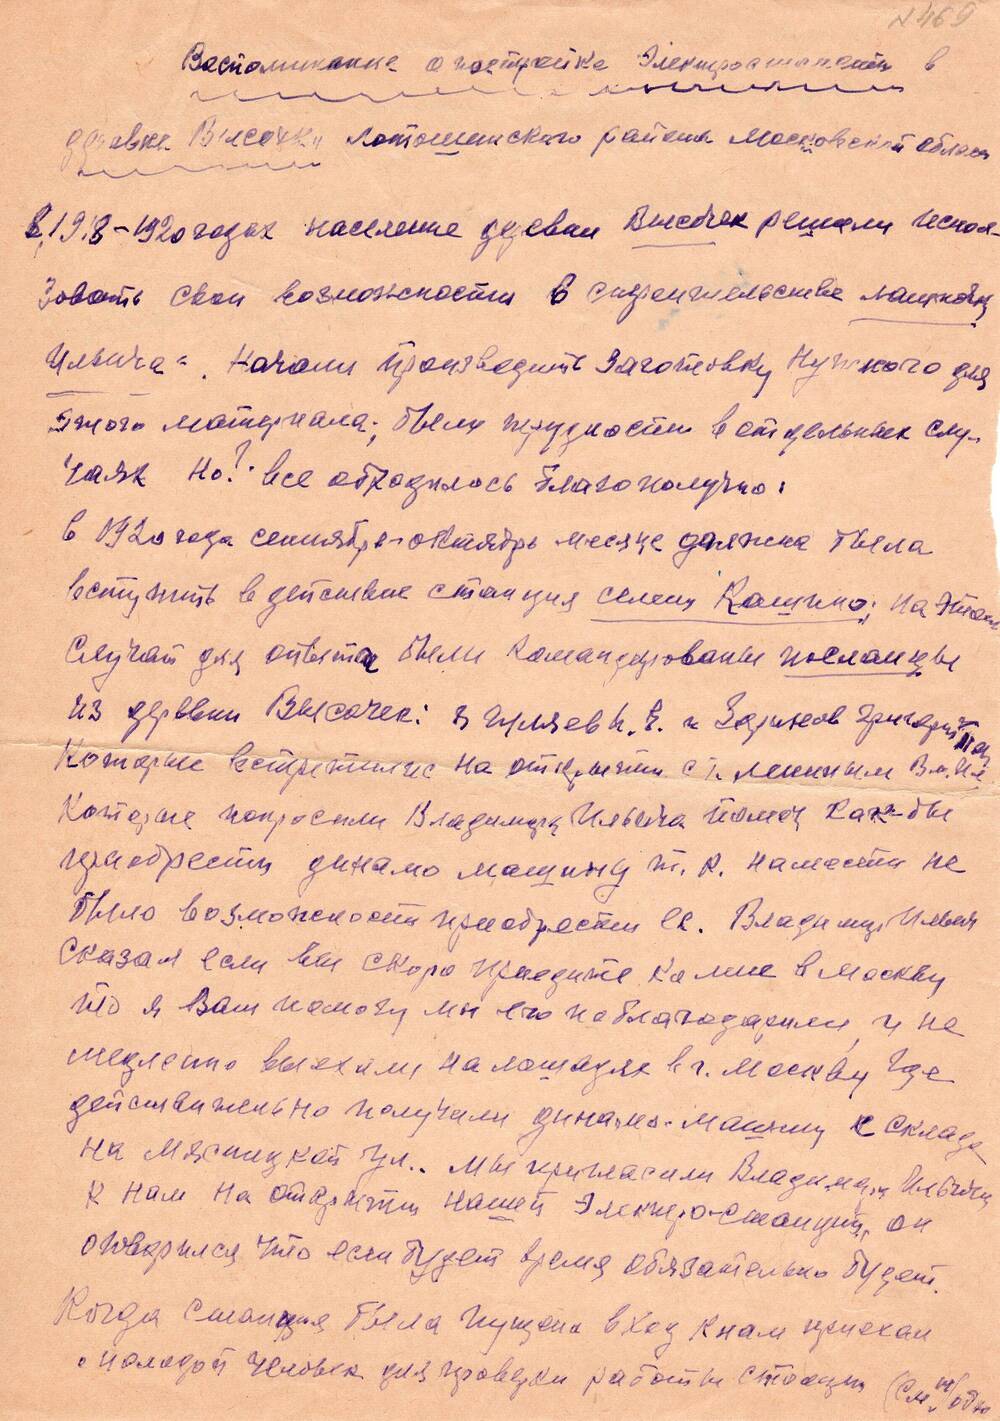 N 469
Воспоминание о постройке Электростанции в
деревне Высочки Лотошинского района Московской област
В 1918-1920 годах население деревни Высочек решили исполь-
зовать свои возможности в строительстве лампочки
Ильича". Начали производить заготовку нужного для
этого материала; были трудности в отдельных слу-
чаях Но? все обходилось благополучно:
в 1920 года сентябре-октябре месяце должна была
вступить в действие станция селения Кашино; на этот
случай для опыта были командированы посланцы
из деревни Высочек: и Зоринов Григорий
Которые встретились на открытии с т. Лениным Вл. Ил
Которые попросили Владимира Ильича помоч как-бы
приобрести динамо машину т. к. на месте не
было возможности приобрести ее. Владимир Ильич
сказал если вы скоро приедите ко мне в Москву
то я Вам помогу мы его поблагодарили, и не
медленно выехали на лошадях в г. Москву где
действительно получили динамо-машину с склада
на Мясницкой ул.. мы пригласили Владимира Ильича
к нам на открытии нашей Электро-станции, он
оговорился что если будет время обязательно будет.
Когда станция была пущена в ход к нам приехал
молодой человек для проверки работы станции (См. н/об